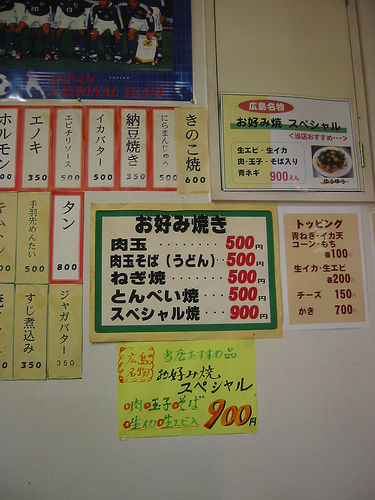 JAPAN
NATIONAL TEAM
エノキ
350
エビチリソース
500
イカバター
500
納豆焼き
350
にらまんじゅう
500
きのこ焼
600
手羽先めんたい
500
タン
800
すじ煮込み
350
ジャガバター
350
広島名物
お好み焼 スペシャル
<当店おすすめ・・・>
生エビ・生イカ
肉・玉子・そば入り
青ネギ 900えん
ゆうゆう
お好み焼き
肉玉 ・・・・・・ 500円
肉玉そば(うどん)・・500円
ねぎ焼 ・・・・・ 500円
とんぺい焼 ・・・ 500円
スペシャル焼 ・・・ 900円
トッピング
青ねぎ・イカ天
コーン・もち
各100円
生イカ・生エビ
各200円
チーズ 150円
かき 700円
広島名物
当店おすすめ品
お好み焼
スペシャル
肉 玉子 そば
生イカ 生エビ入
900円